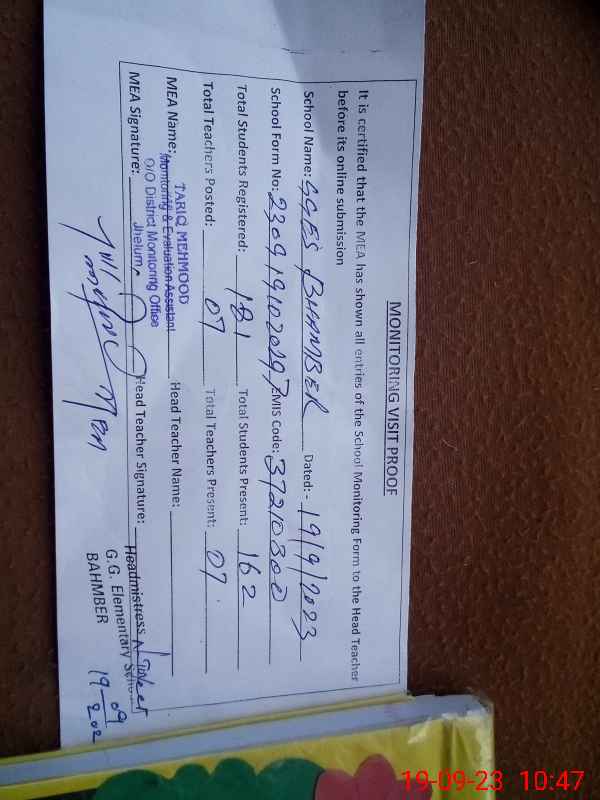 MONITORING VISIT PROOF
It is certified that the MEA has shown all entries of the School Monitoring Form to the Head Teacher
before its online submission
School Name: GGES BHAMBER Dated:- 19/9/2023
School Form No: EMIS Code: 37210300
Total Students Registered: 181 Total Students Present: 162
Total Teachers Posted: 07 Total Teachers Present: 07
MEA Name: TARIQ MEHMOOD Head Teacher Name:
Monitoring & Evaluation Assistant
O/O District Monitoring Office
Jhelum.
MEA Signature: Head Teacher Signature:
Headmistress
G.G. Elementary School
BAHMBER
19-09
202
19-09-23 10:47